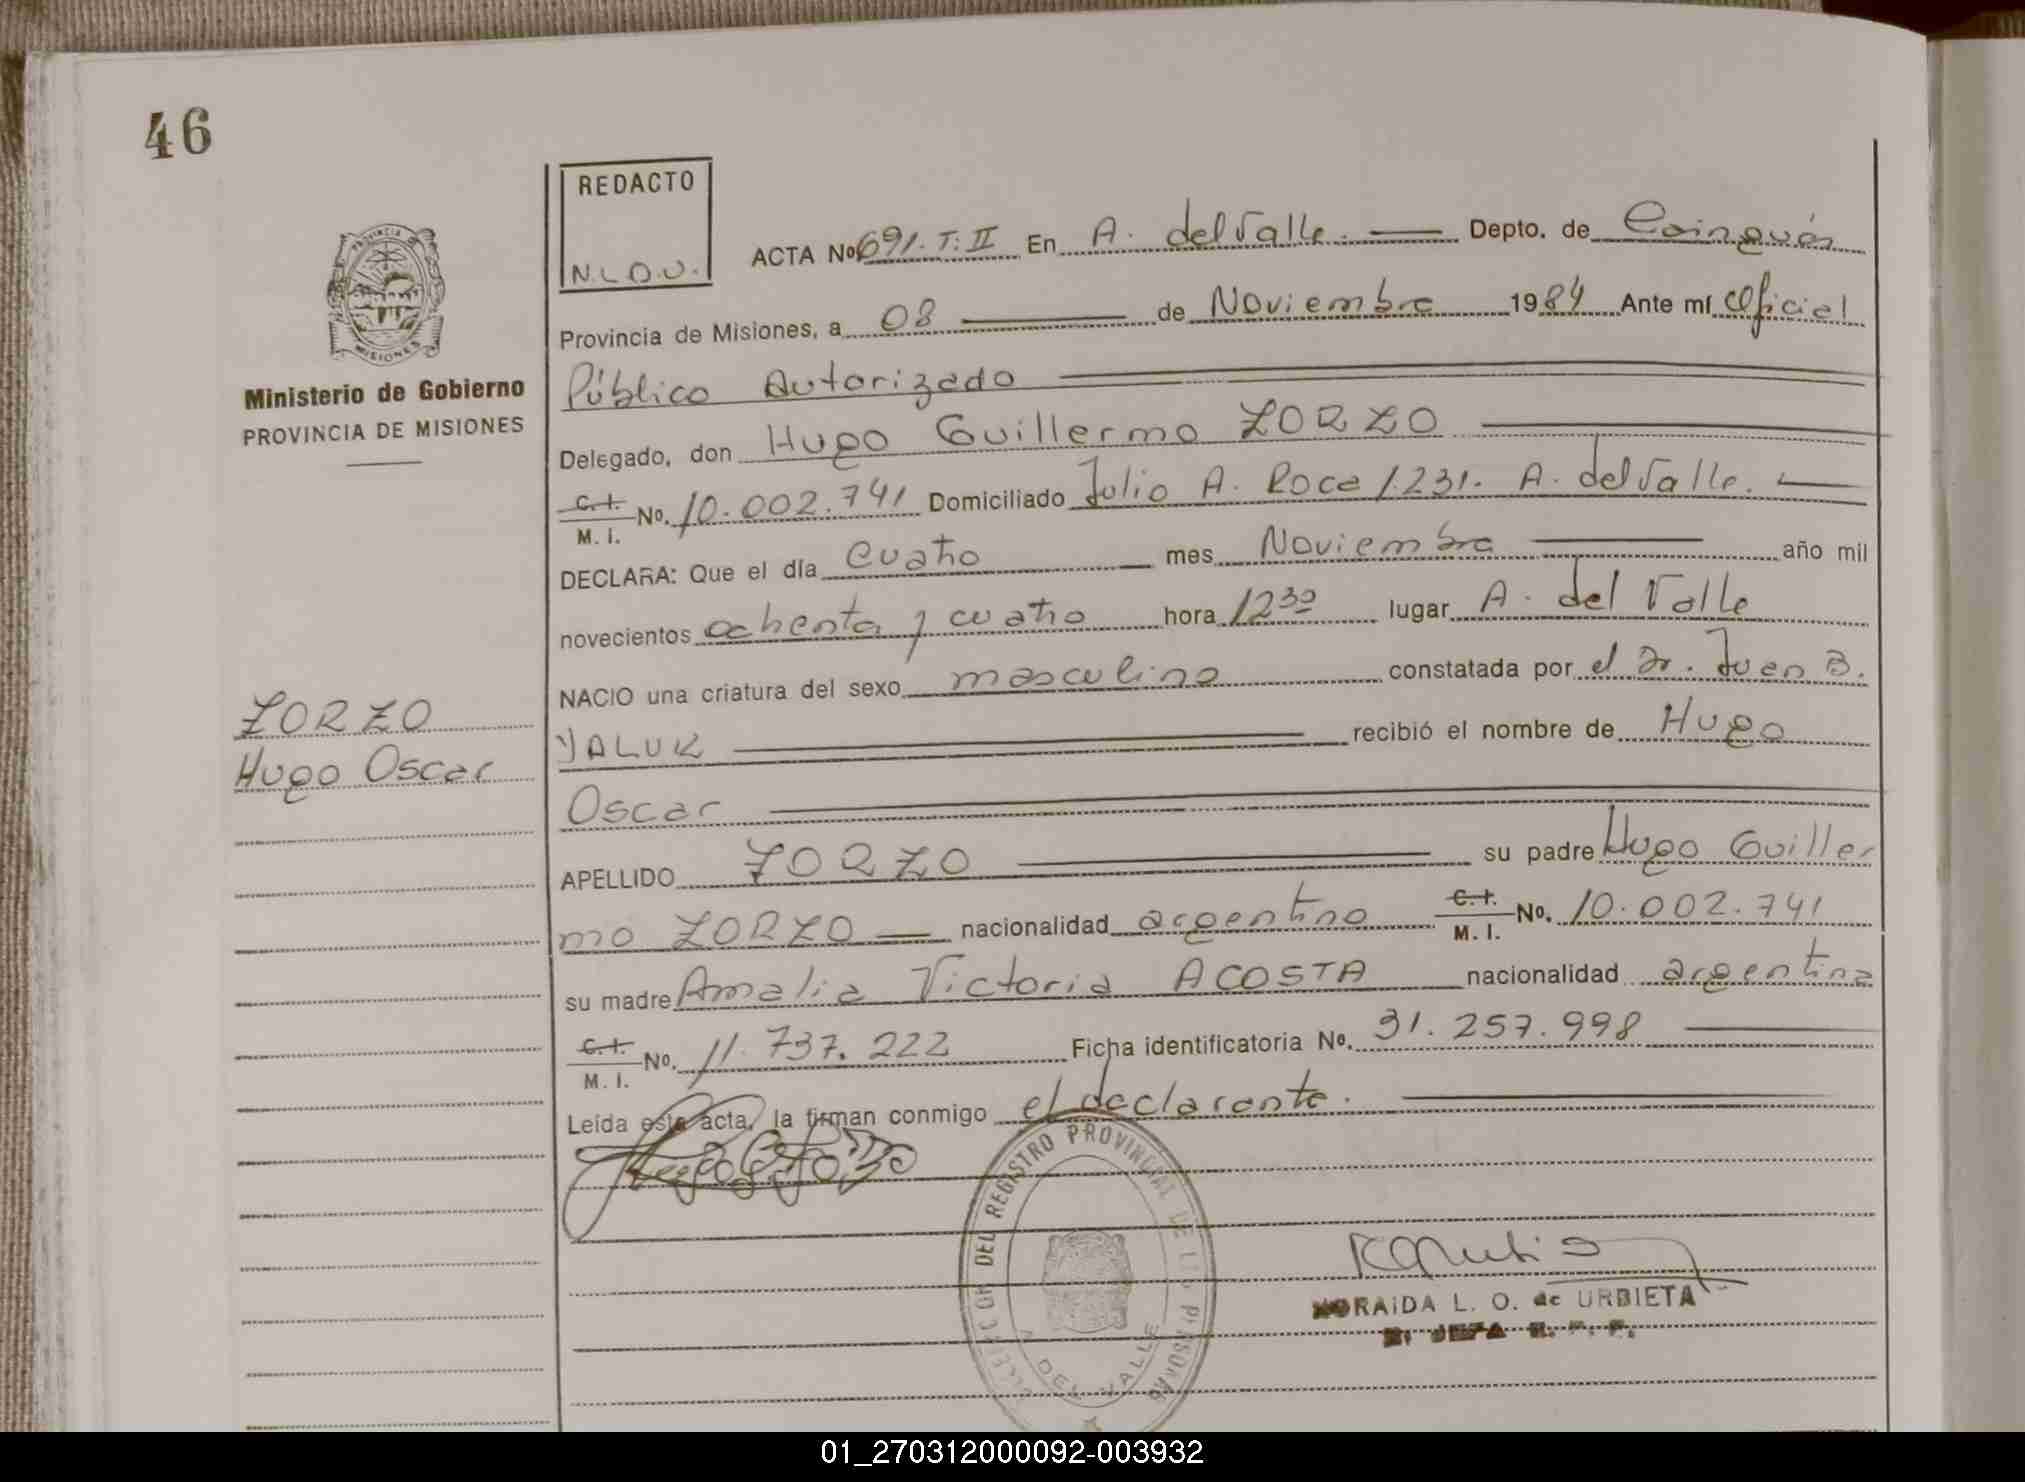 46
REDACTO
N.L.O.U.
ACTA Nº 691. T: II En A. del Valle. Depto. de Cainguás
Provincia de Misiones, a 08 de Noviembre 1984 Ante mí Oficial
Público Autorizado
Ministerio de Gobierno
PROVINCIA DE MISIONES
Delegado, don Hugo Guillermo ZORZO
C.I. M.I. No. 10.002.741 Domiciliado Julio A. Roca 1231. A. del Valle.
DECLARA: Que el día cuatro mes Noviembre año mil
novecientos ochenta y cuatro hora 12 30 lugar A. del Valle
NACIO una criatura del sexo masculino constatada por el Dr. Juan B.
YALUK recibió el nombre de Hugo
Oscar
ZORZO
Hugo Oscar
APELLIDO ZORZO su padre Hugo Guiller
mo ZORZO nacionalidad argentino C.I. M.I. No. 10.002.741
su madre Amalia Victoria ACOSTA nacionalidad argentina
C.I. M.I. No. 11.737.222 Ficha identificatoria No. 31.257.998
Leída esta acta, la firman conmigo el declarante.
DEL REGISTRO PROVINCIAL DE LAS PERSONAS
DEL VALLE
NORAIDA L. O. de URBIETA
01_270312000092-003932